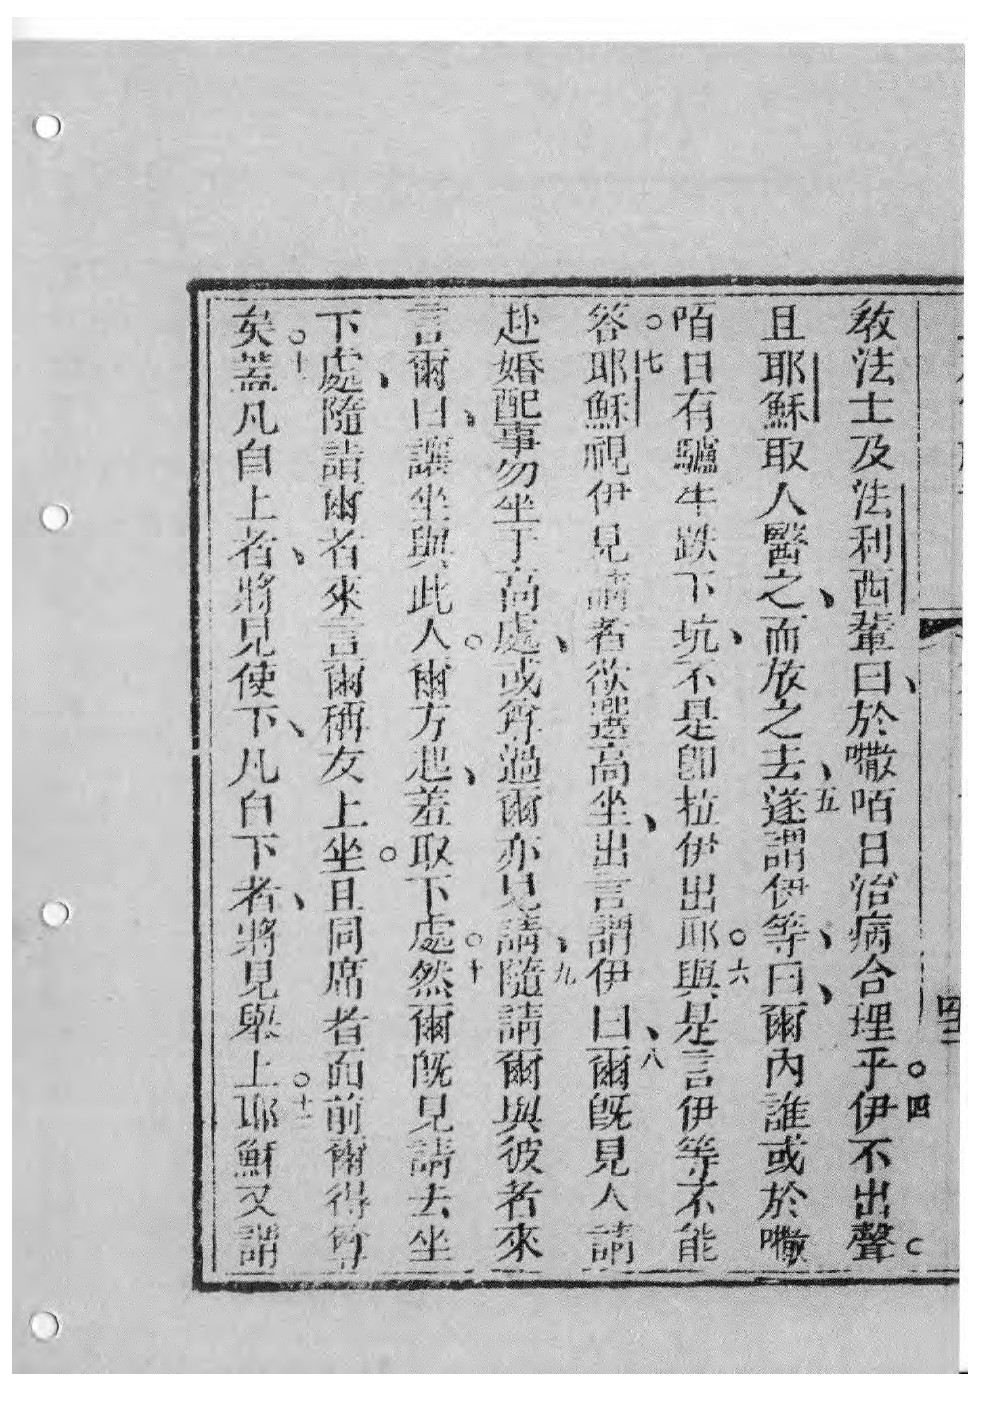 教法士及法利西輩曰、於嚫咟日治病合理乎。四伊不出聲。
且耶穌取人醫之、而放之去、五遂謂伊等、曰、爾內誰或於𡃤
咟日有驢牛跌下坑、不是卽拉伊出耶。六與是言伊等不能
答。七耶穌視伊見請者欲選高坐、出言謂伊曰、八爾旣見人請
赴婚配事勿坐于高處、或尊過爾亦見請、九隨請爾與彼者來
言爾曰、讓坐與此人。爾方起、羞取下處。十然爾旣見請去坐
下處、隨請爾者來言爾、友上坐。且同席者面前爾得尊
矣。十一蓋凡自上者、將見使下、凡自下者、將見舉上。十二耶穌又謂
四二